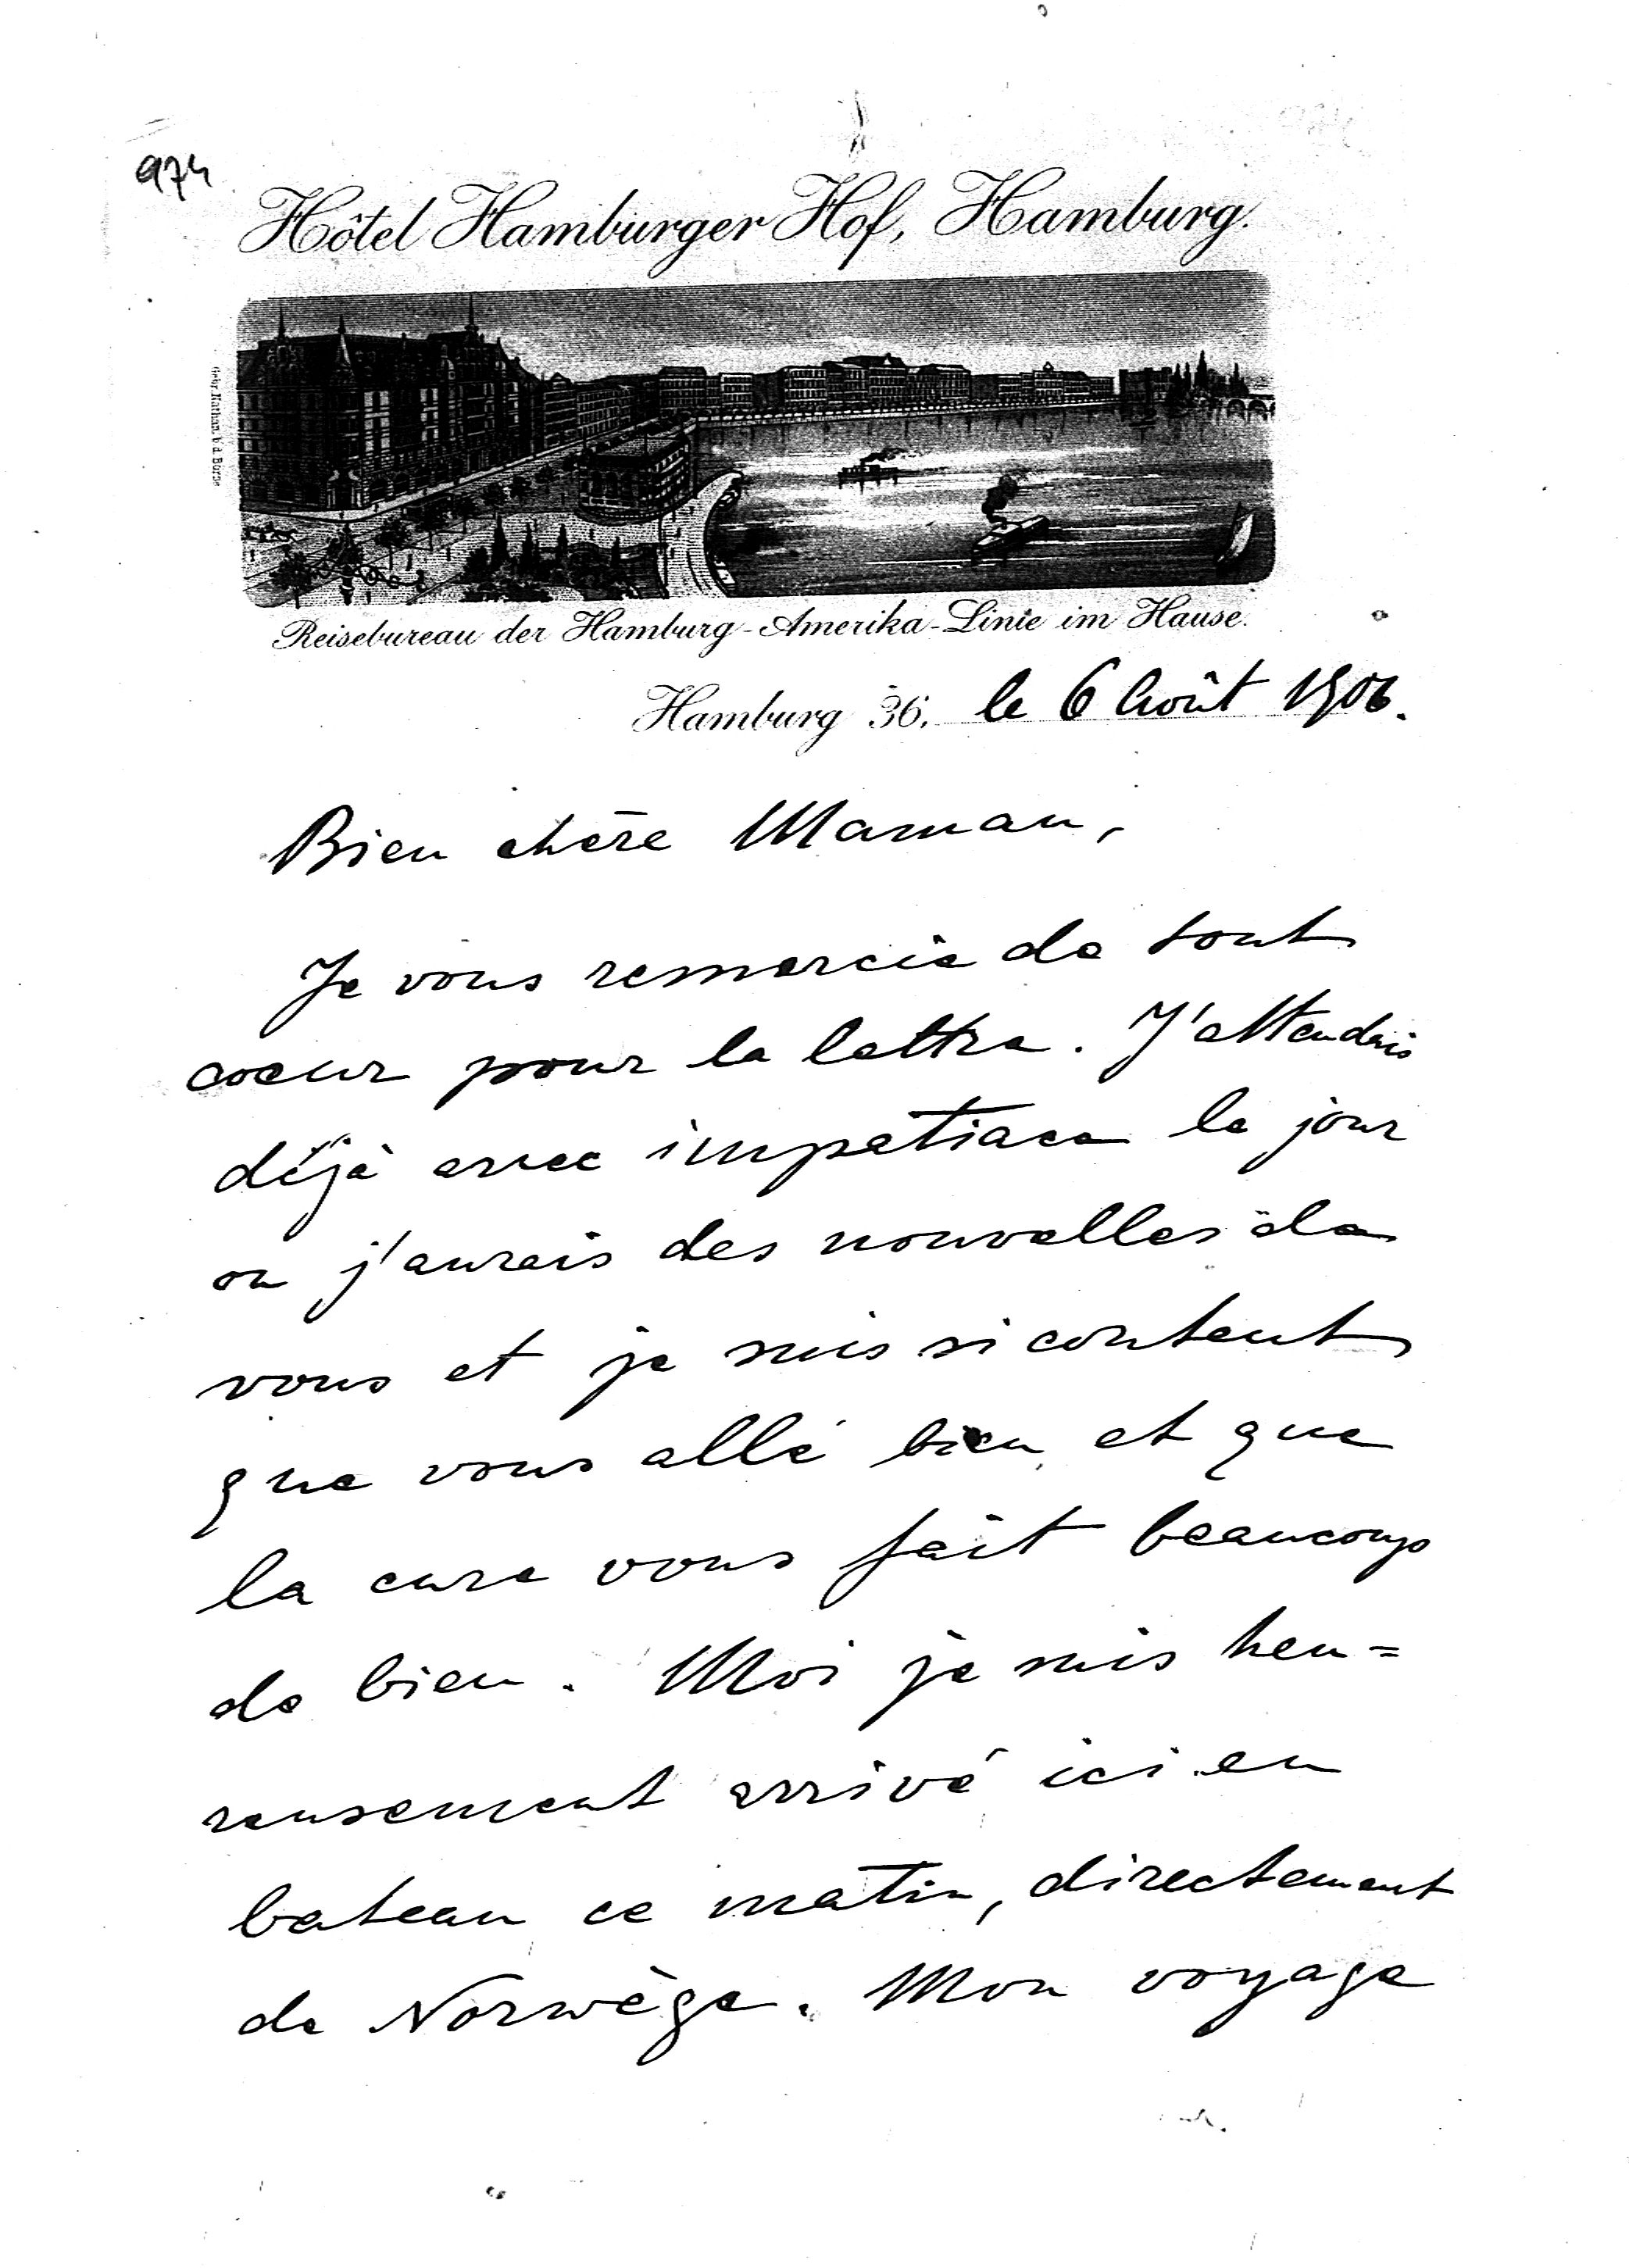 974
Hôtel Hamburger Hof, Hamburg.
Gebr. Nathan, b/d. Börse
Reisebureau der Hamburg-Amerika-Linie im Hause.
Hamburg 36, le 6 Août 1906.
Bien chère Maman,
Je vous remercie de tout
coeur pour la lettre. J'attendais
déjà avec impatiace le jour
ou j'aurais des nouvelles de
vous et je suis si content
que vous allé bien et que
la cure vous fait beaucoup
de bien. Moi je suis heu=
reusement arrivé ici en
bateau ce matin, directement
de Norwège. Mon voyage